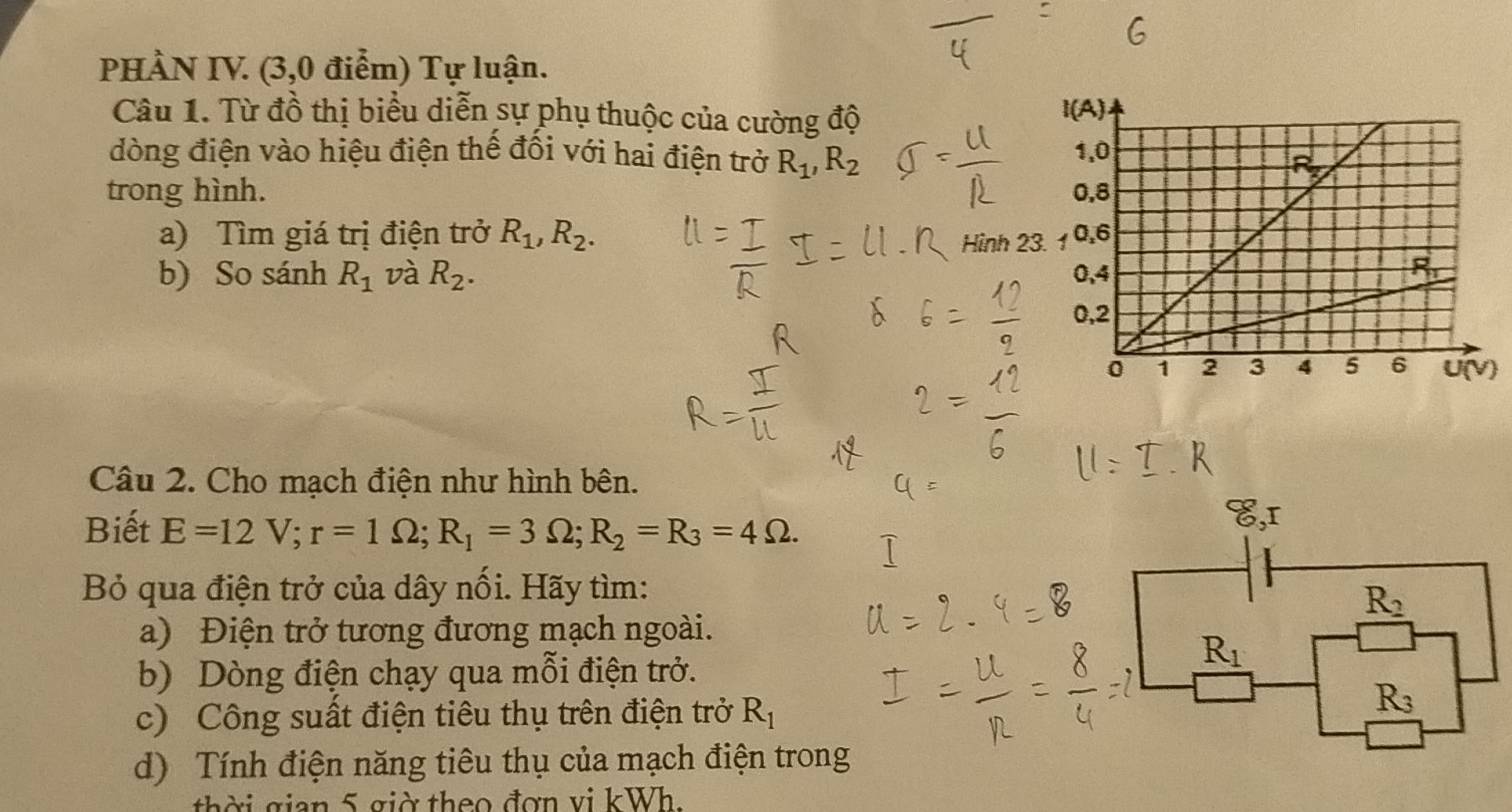 4 = 6
PHẦN IV. (3,0 điểm) Tự luận.
Câu 1. Từ đồ thị biểu diễn sự phụ thuộc của cường độ
dòng điện vào hiệu điện thế đối với hai điện trở R₁, R₂
trong hình.
a) Tìm giá trị điện trở R₁, R₂.
b) So sánh R₁ và R₂.
I = U/R
U = I/R
I = U.R
Hình 23. 1
6 = 12/2
R
R = I/U
2 = 12/6
4 =
U = I.R
I(A)
1,0
0,8
0,6
0,4
0,2
0 1 2 3 4 5 6 U(V)
R₂
R₁
Câu 2. Cho mạch điện như hình bên.
Biết E =12 V; r = 1 Ω; R₁ = 3 Ω; R₂ = R₃ = 4 Ω.
Bỏ qua điện trở của dây nối. Hãy tìm:
a) Điện trở tương đương mạch ngoài.
b) Dòng điện chạy qua mỗi điện trở.
c) Công suất điện tiêu thụ trên điện trở R₁
d) Tính điện năng tiêu thụ của mạch điện trong
thời gian 5 giờ theo đơn vị kWh.
I
U = 2.4 = 8
I = U/R = 8/4 = 2
ℰ,r
R₁
R₂
R₃